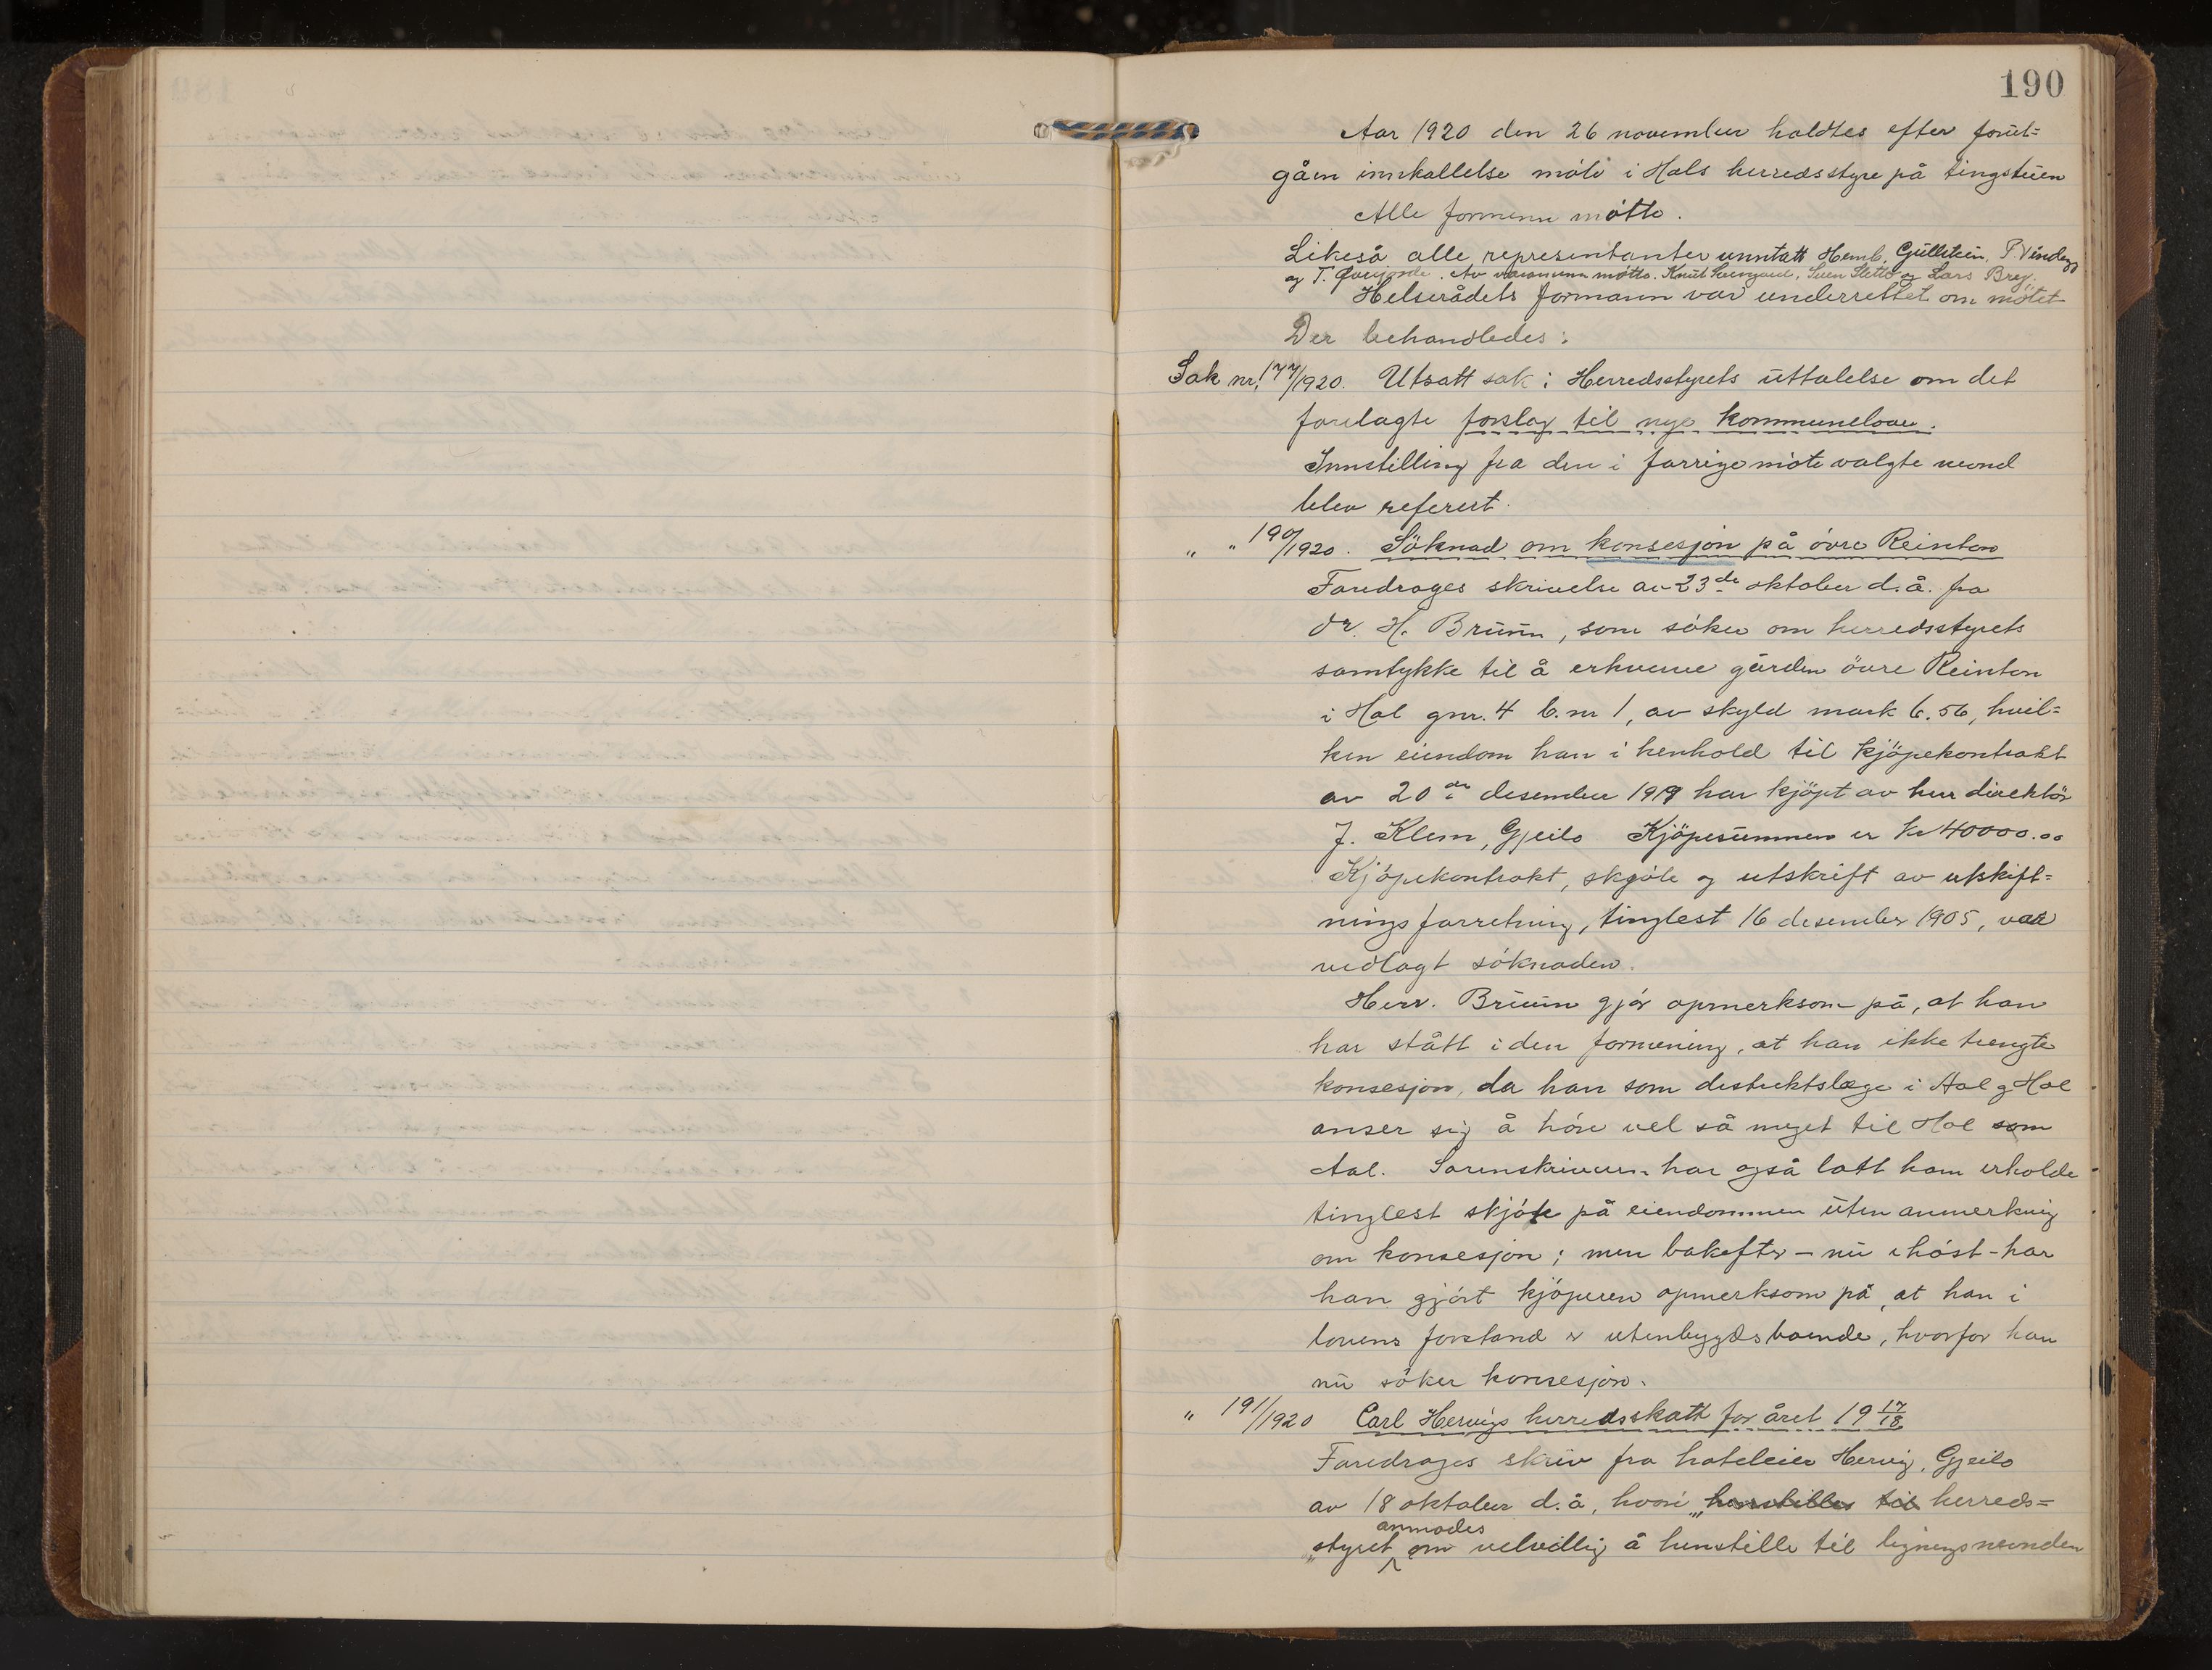 190
Aar 1920 den 26 november holdtes efter forut=
gåen innkallelse möte i Hols herredsstyre på tingstuen
Alle formenn mötte.
Likeså alle representanter unntatt Hemb. Gullstein, P.
og T. Av varamenn mötte. Knut Svengaard, Sven Sletto og Lars Breg.
Helserådets formann var underrettet om mötet
Der behandledes:
Sak nr. 177/1920. Utsatt sak: Herredsstyrets uttalelse om det
forelagte forslag til nye kommunelover.
Innstilling fra den i forrige möte valgte nevnd
blev referert.
" " 190/1920. Söknad om konsesjon på övre Reinton
Foredrages skrivelse av 23de oktober d.å. fra
dr. H. Bruun, som söker om herredsstyrets
samtykke til å erhverve gården övre Reinton
i Hol gnr. 4 b.nr 1, av skyld mark 6.56, hvil=
ken eiendom han i henhold til kjöpekontrakt
av 20de desember 1919 har kjöpt av herr direktör
J. Klem, Gjeilo Kjöpesummen er kr 40000.00
Kjöpekontrakt, skjöte og utskrift av utskift=
nings forretning, tinglest 16 desember 1905, var
vedlagt söknaden.
Herr. Bruun gjör opmerksom på, at han
har stått i den formening, at han ikke trengte
konsesjon, da han som destriktslæge i Aal og Hol
anser sig å höre vel så meget til Hol som
Aal. Sorenskriveren har også latt ham erholde
tinglest skjöte på eiendommen uten anmerkning
om konsesjon; men bakefter – nu i höst – har
han gjört kjöperen opmerksom på, at han i
lovens forstand er utenbygdsboende, hvorfor han
nu söker konsesjon.
" 191/1920 Carl Hervigs herredsskatt for året 19 17/18
Foredrages skriv fra hoteleier Hervig, Gjeilo
av 18 oktober d.å, hvori "henstilles til herreds=
anmodes
"styret om velvillig å henstille til ligningsnevnden